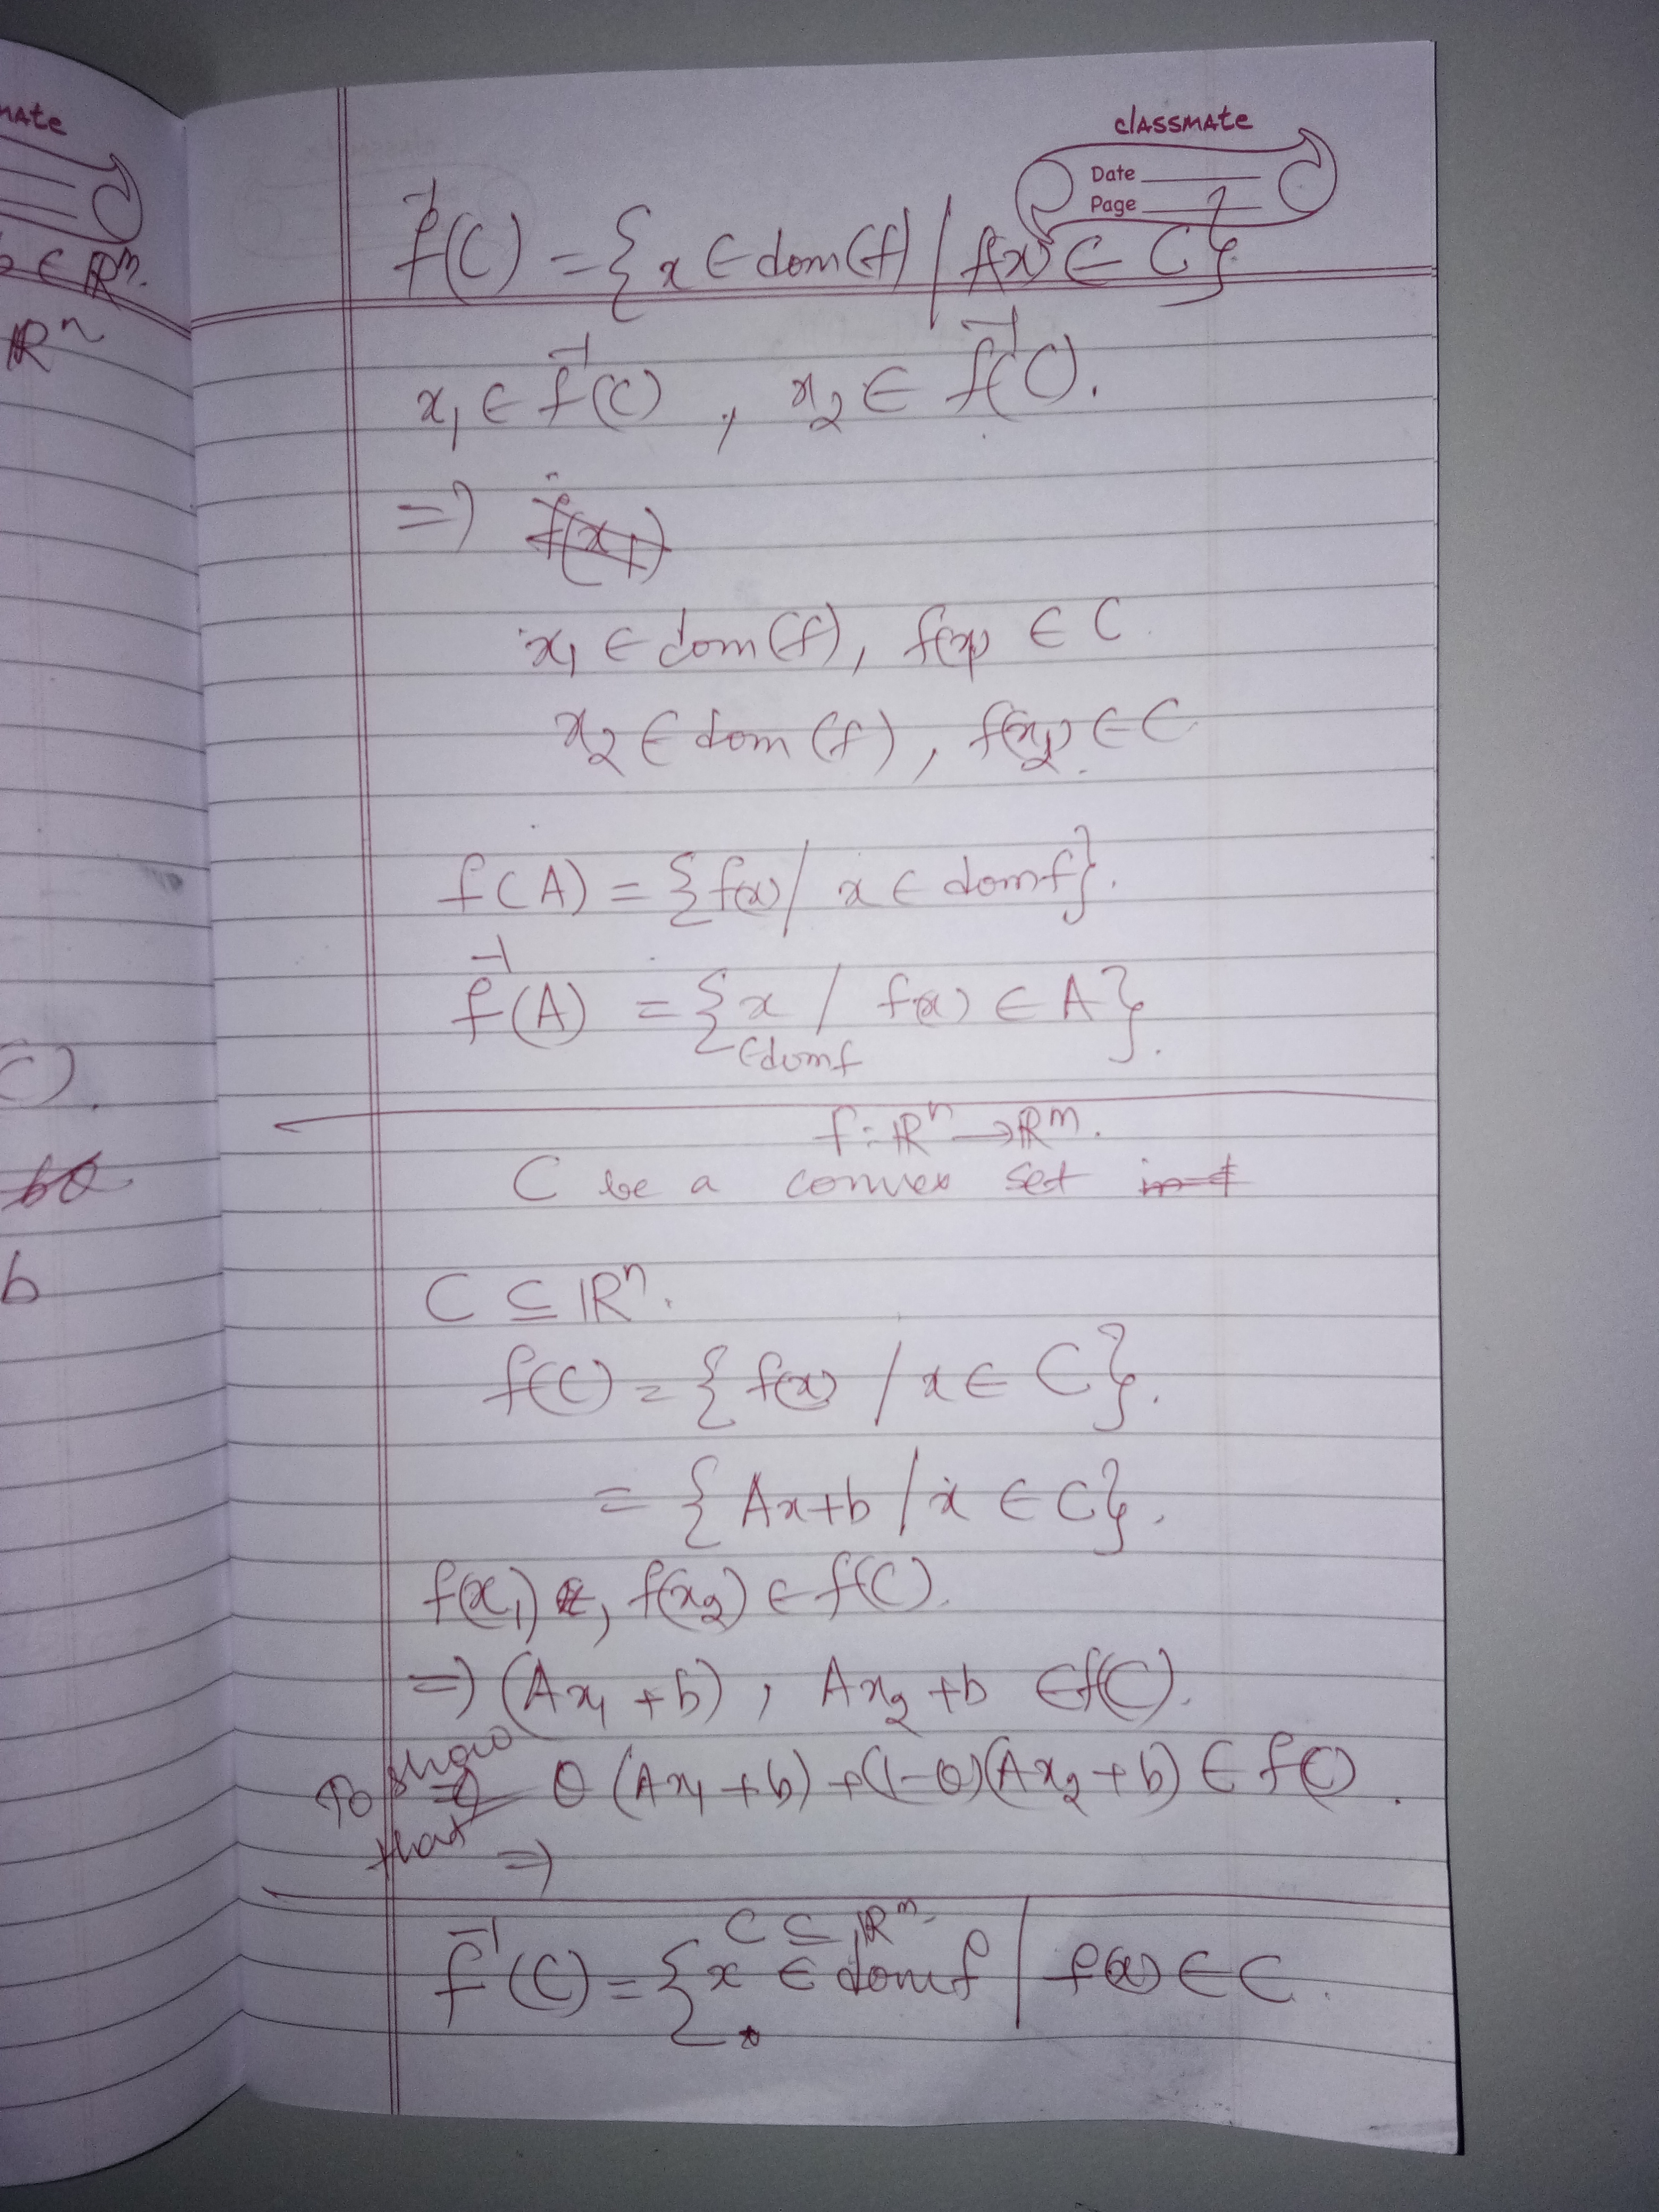 mate
b ∈ ℝᵐ.
ℝⁿ
C).
b
classmate
Date
Page
f⁻¹(C) = {x ∈ dom(f) / f(x) ∈ C}
x₁ ∈ f⁻¹(C) , x₂ ∈ f⁻¹(C).
⇒ f(x₁)
x₁ ∈ dom(f), f(x₁) ∈ C.
x₂ ∈ dom(f), f(x₂) ∈ C
f(A) = {f(x) / x ∈ domf}.
f⁻¹(A) = {x / f(x) ∈ A}.
∈domf
f: ℝⁿ → ℝᵐ.
C be a convex set in
C ⊆ ℝⁿ.
f(C) = {f(x) / x ∈ C}.
= {Ax+b / x ∈ C}.
f(x₁) , f(x₂) ∈ f(C).
⇒ (Ax₁ + b) , Ax₂ + b ∈ f(C).
To show that θ(Ax₁ + b) + (1-θ)(Ax₂ + b) ∈ f(C).
⇒
C ⊆ ℝᵐ.
f⁻¹(C) = {x ∈ domf | f(x) ∈ C.